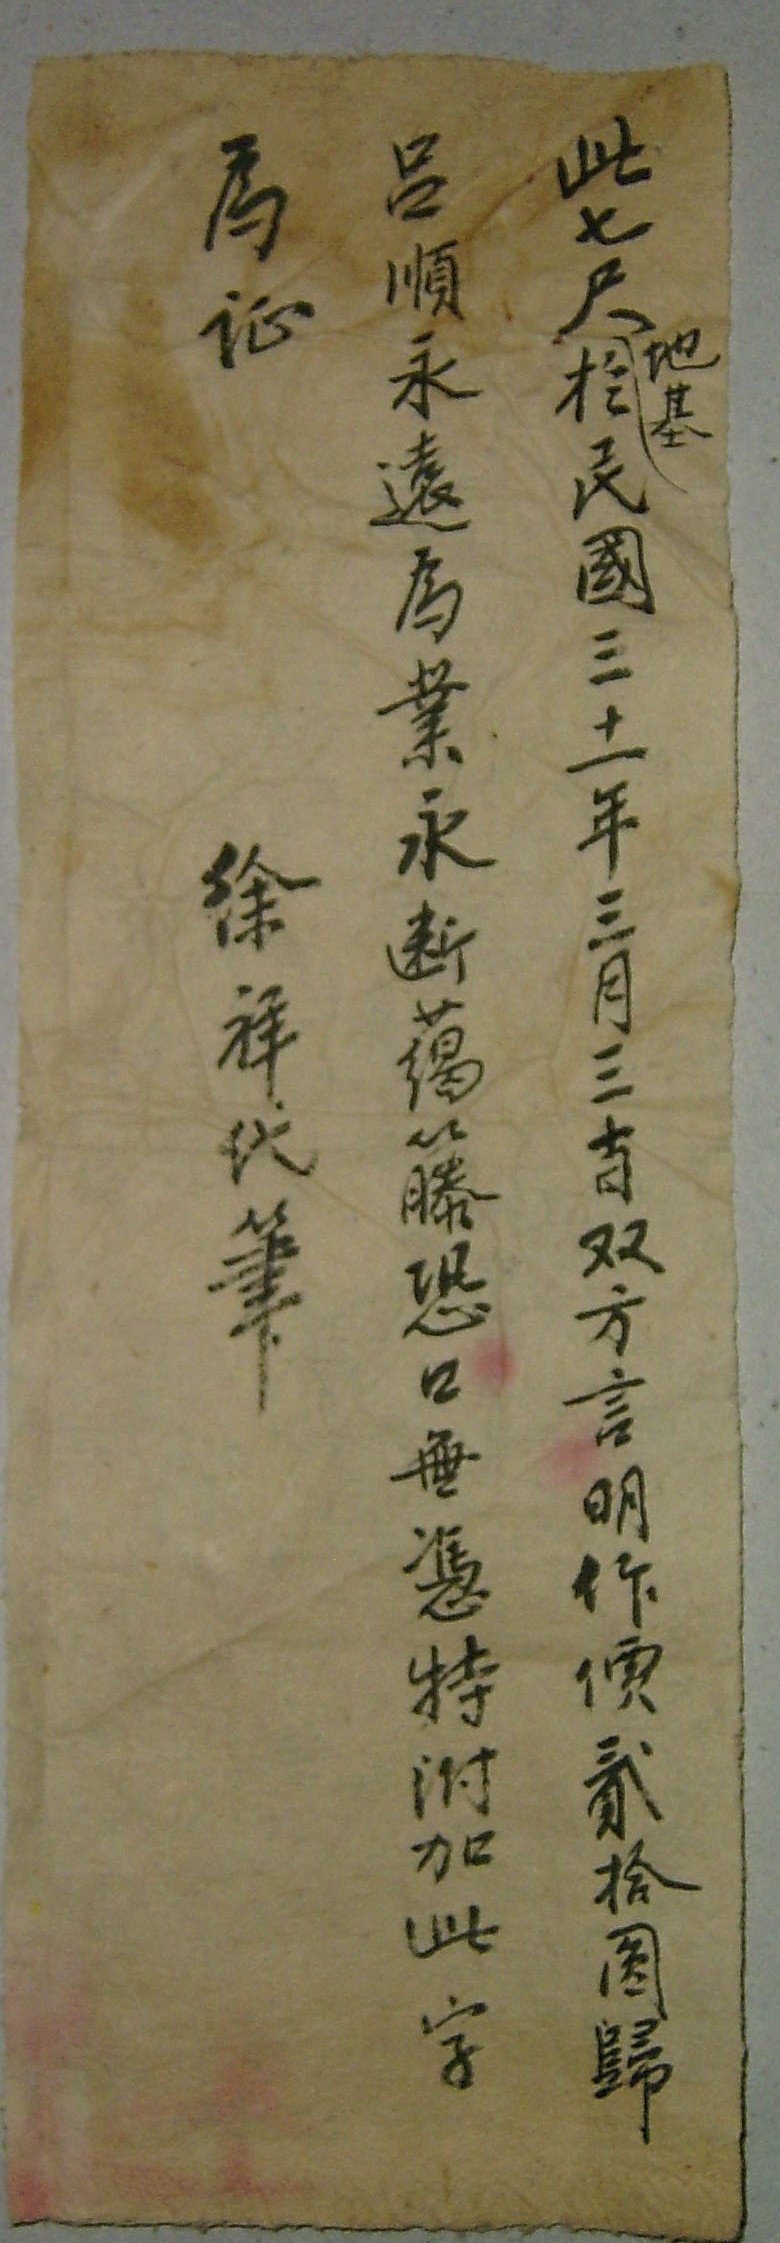 此七尺地基於民國三十一年三月三十日双方言明作價貳拾圓歸
呂順永遠為業永断葛籐恐口無憑特附加此字
為証
徐祥代筆